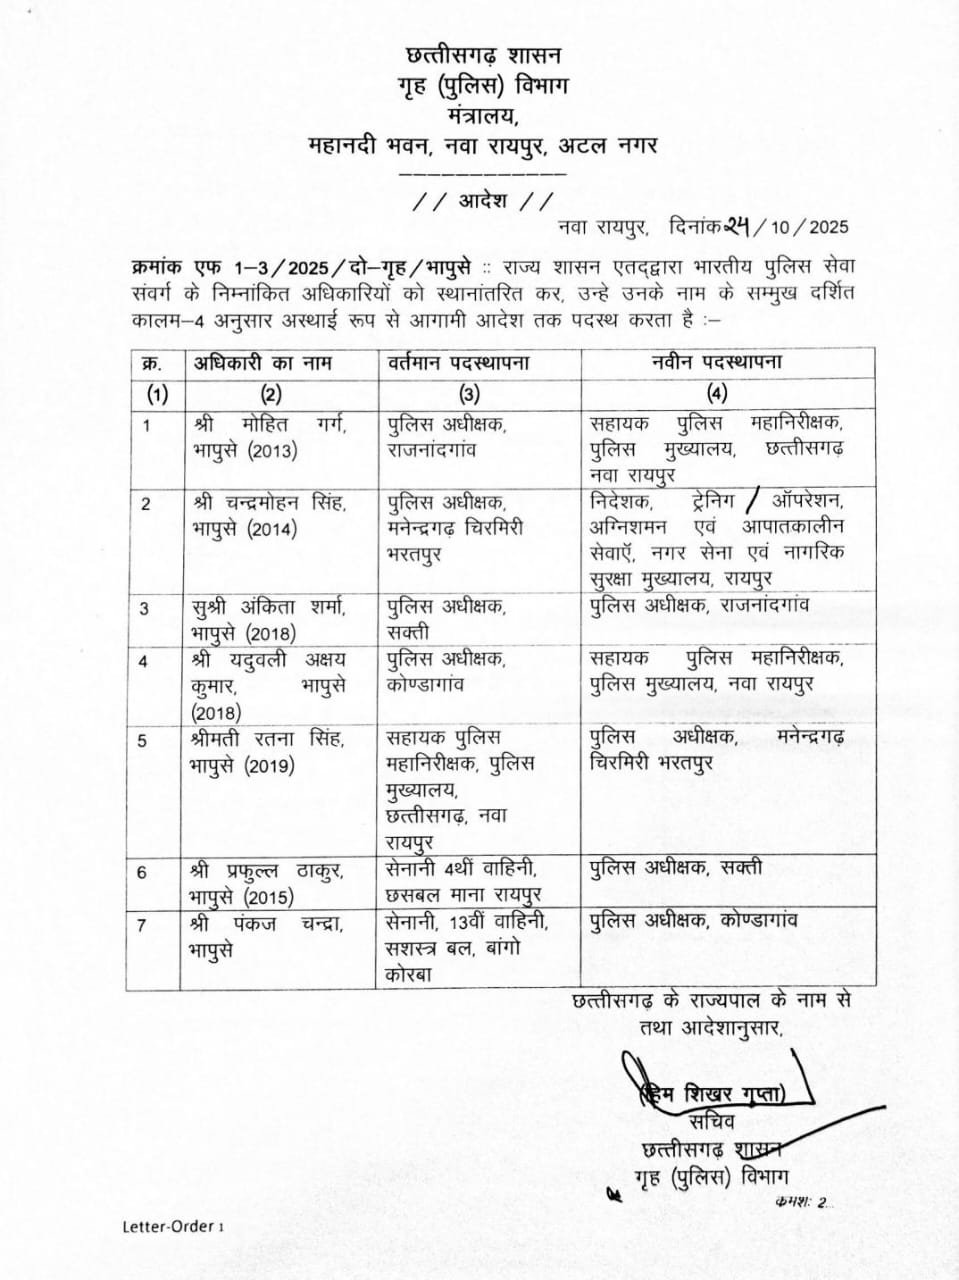 छत्तीसगढ़ शासन
गृह (पुलिस) विभाग
मंत्रालय,
महानदी भवन, नवा रायपुर, अटल नगर
-------------
// आदेश //
नवा रायपुर, दिनांक 24/10/2025
क्रमांक एफ 1-3/2025/दो-गृह/भापुसे :: राज्य शासन एतद्द्वारा भारतीय पुलिस सेवा
संवर्ग के निम्नांकित अधिकारियों को स्थानांतरित कर, उन्हे उनके नाम के सम्मुख दर्शित
कालम-4 अनुसार अस्थाई रूप से आगामी आदेश तक पदस्थ करता है :-
क्र. अधिकारी का नाम वर्तमान पदस्थापना नवीन पदस्थापना
(1) (2) (3) (4)
1 श्री मोहित गर्ग, पुलिस अधीक्षक, सहायक पुलिस महानिरीक्षक,
भापुसे (2013) राजनांदगांव पुलिस मुख्यालय, छत्तीसगढ़
नवा रायपुर
2 श्री चन्द्रमोहन सिंह, पुलिस अधीक्षक, निदेशक, ट्रेनिग / ऑपरेशन,
भापुसे (2014) मनेन्द्रगढ़ चिरमिरी अग्निशमन एवं आपातकालीन
भरतपुर सेवाऍ, नगर सेना एवं नागरिक
सुरक्षा मुख्यालय, रायपुर
3 सुश्री अंकिता शर्मा, पुलिस अधीक्षक, पुलिस अधीक्षक, राजनांदगांव
भापुसे (2018) सक्ती
4 श्री यदुवली अक्षय पुलिस अधीक्षक, सहायक पुलिस महानिरीक्षक,
कुमार, भापुसे कोण्डागांव पुलिस मुख्यालय, नवा रायपुर
(2018)
5 श्रीमती रतना सिंह, सहायक पुलिस पुलिस अधीक्षक, मनेन्द्रगढ़
भापुसे (2019) महानिरीक्षक, पुलिस चिरमिरी भरतपुर
मुख्यालय,
छत्तीसगढ़, नवा
रायपुर
6 श्री प्रफुल्ल ठाकुर, सेनानी 4थीं वाहिनी, पुलिस अधीक्षक, सक्ती
भापुसे (2015) छसबल माना रायपुर
7 श्री पंकज चन्द्रा, सेनानी, 13वीं वाहिनी, पुलिस अधीक्षक, कोण्डागांव
भापुसे सशस्त्र बल, बांगो
कोरबा
छत्तीसगढ़ के राज्यपाल के नाम से
तथा आदेशानुसार,
(हिम शिखर गुप्ता)
सचिव
छत्तीसगढ़ शासन
गृह (पुलिस) विभाग
कमशः 2..
Letter-Order 1